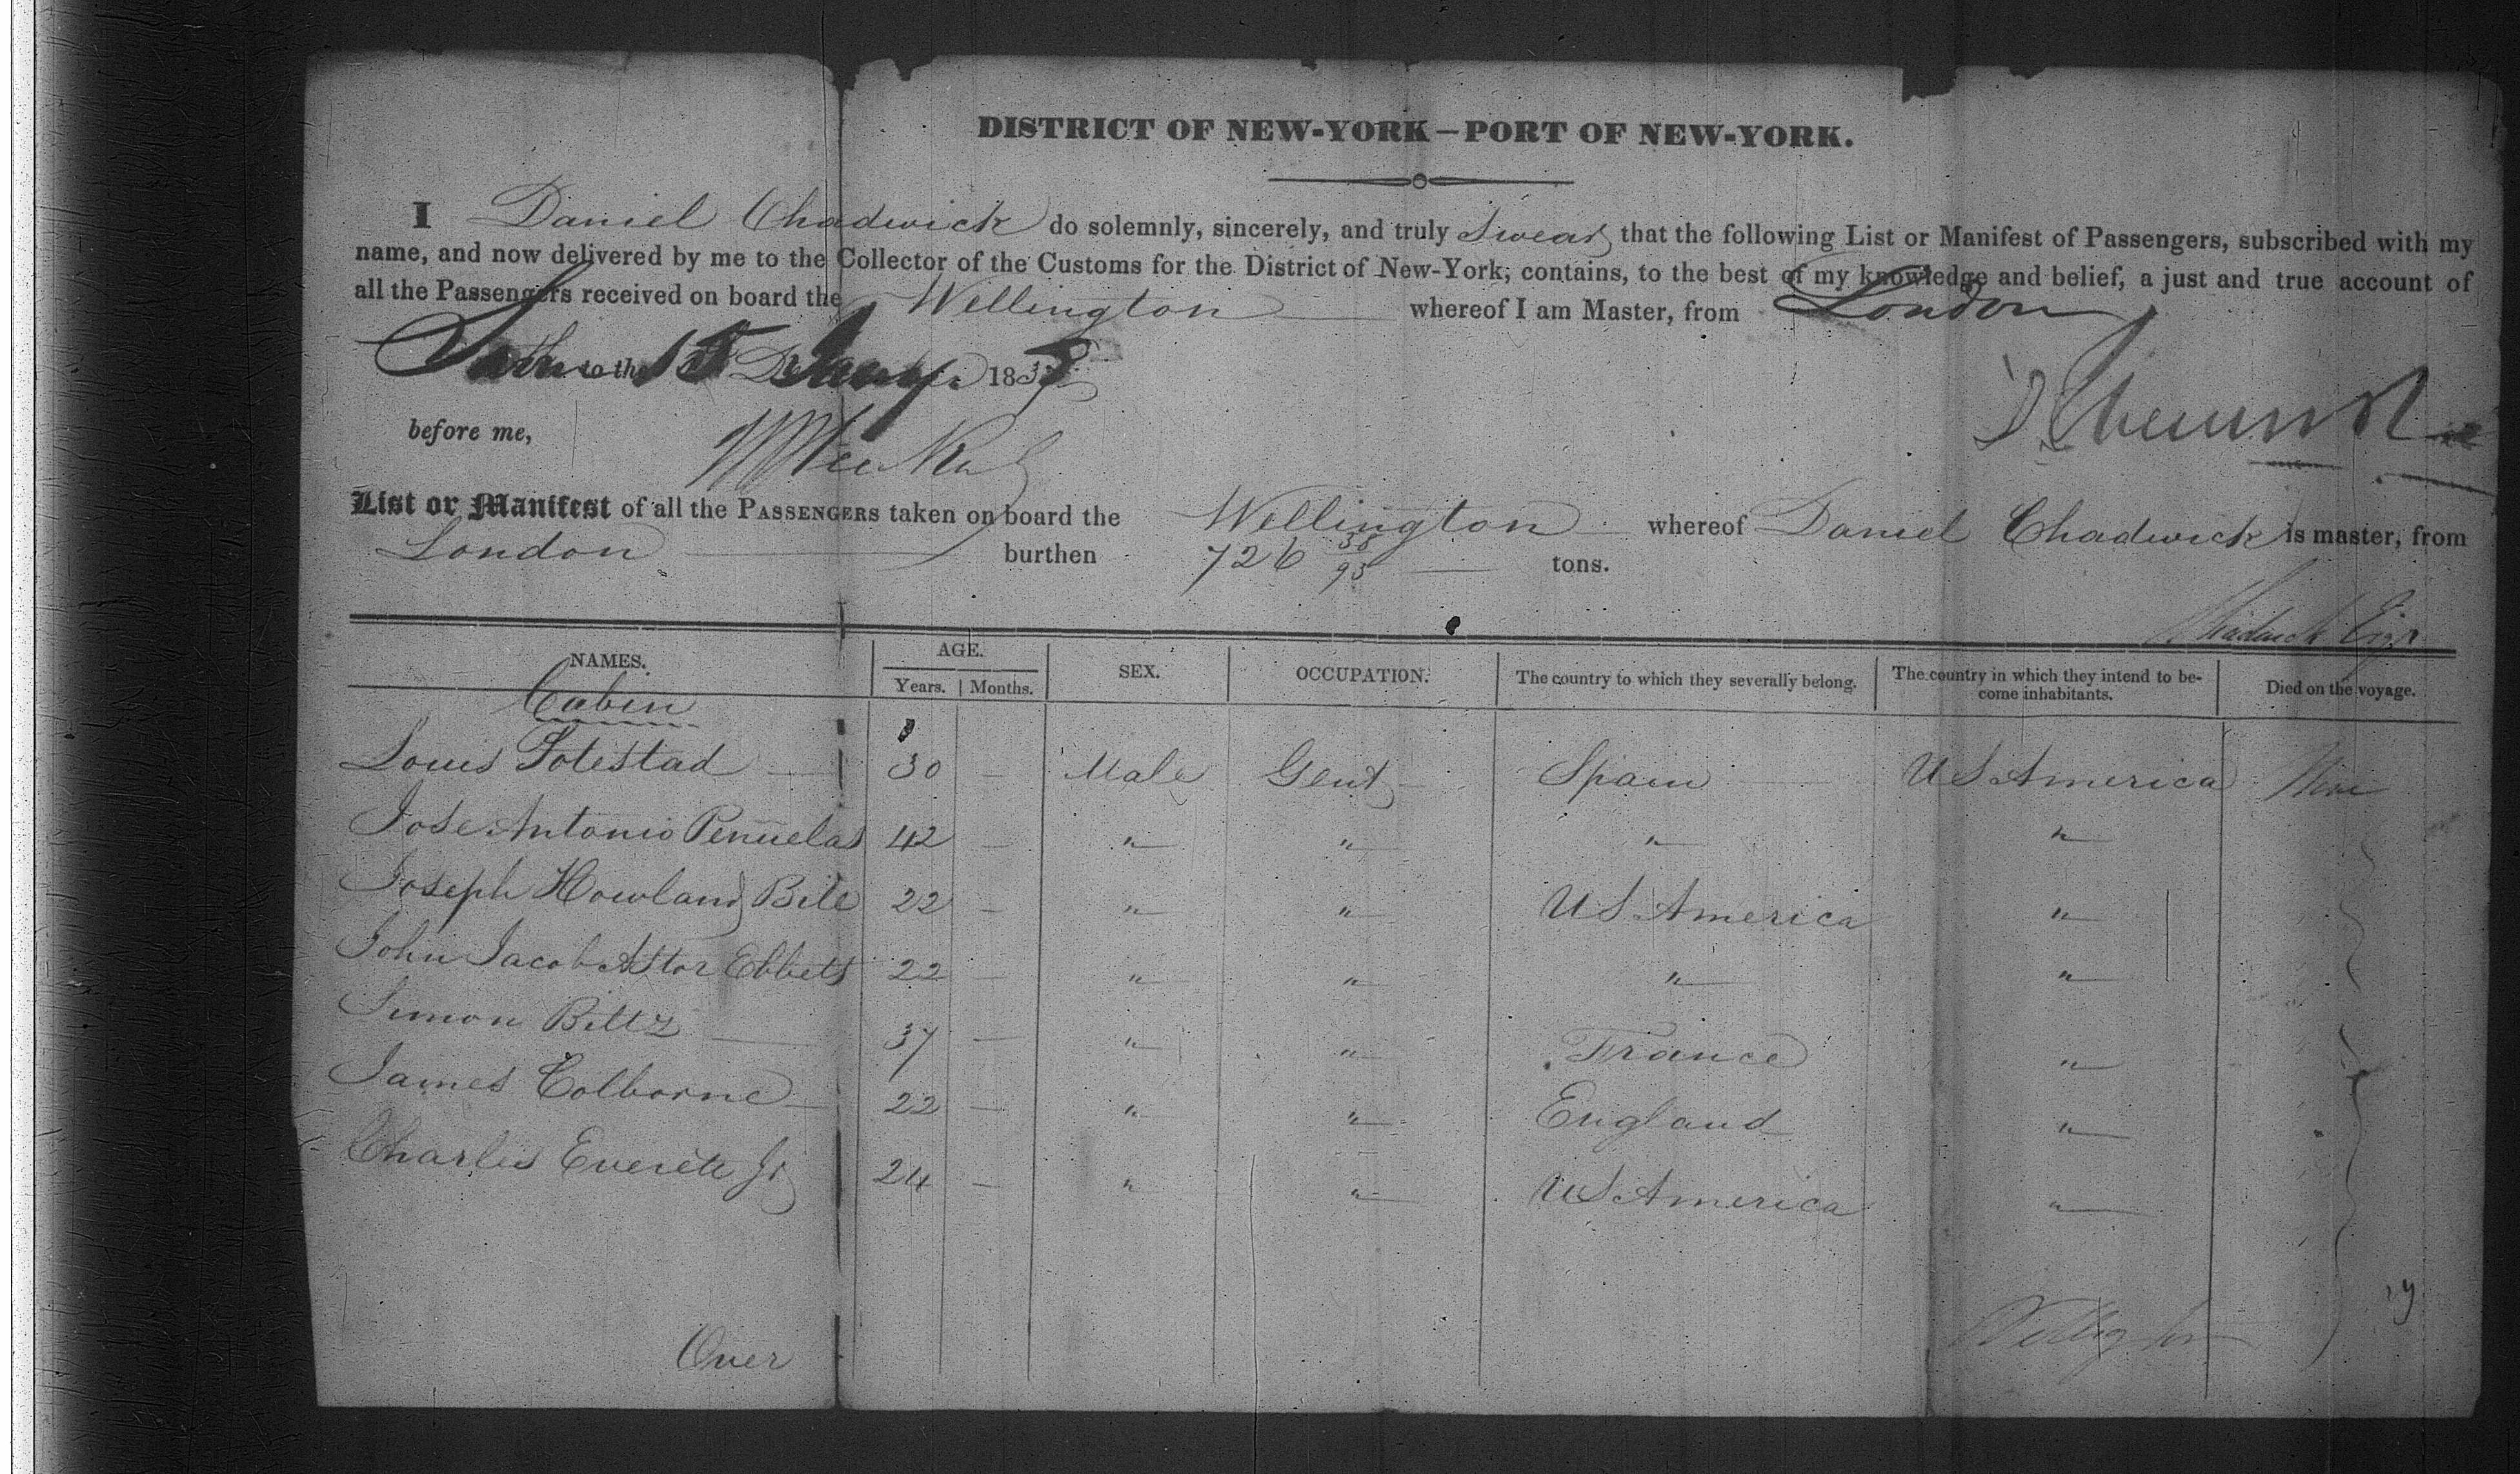 DISTRICT OF NEW-YORK—PORT OF NEW-YORK.
I Daniel Chadwick do solemnly, sincerely, and truly Swear that the following List or Manifest of Passengers, subscribed with my
name, and now delivered by me to the Collector of the Customs for the District of New-York, contains, to the best of my knowledge and belief, a just and true account of
all the Passengers received on board the Wellington whereof I am Master, from London
to the 183
before me,
List or Manifest of all the PASSENGERS taken on board the Wellington whereof Daniel Chadwick is master, from
London burthen 726 38/95 tons.
NAMES. AGE. SEX. OCCUPATION. The country to which they severally belong. The country in which they intend to be- Died on the voyage.
Years. Months. come inhabitants.
Cabin
Louis Potestad 30 — Male Gent Spain US America None
Jose Antonio Penuelas 42 — " " " "
Joseph Howland Bill 22 — " " US America "
John Jacob Astor Ebbets 22 — " " " "
Simon Biltz 37 — " " France "
James Colborne 22 — " " England "
Charles Everett Jr 24 — " " US America "
Over
Wellington